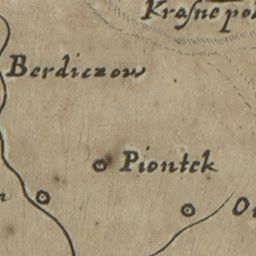 Kraſne pol
Berdiczow
Piontek